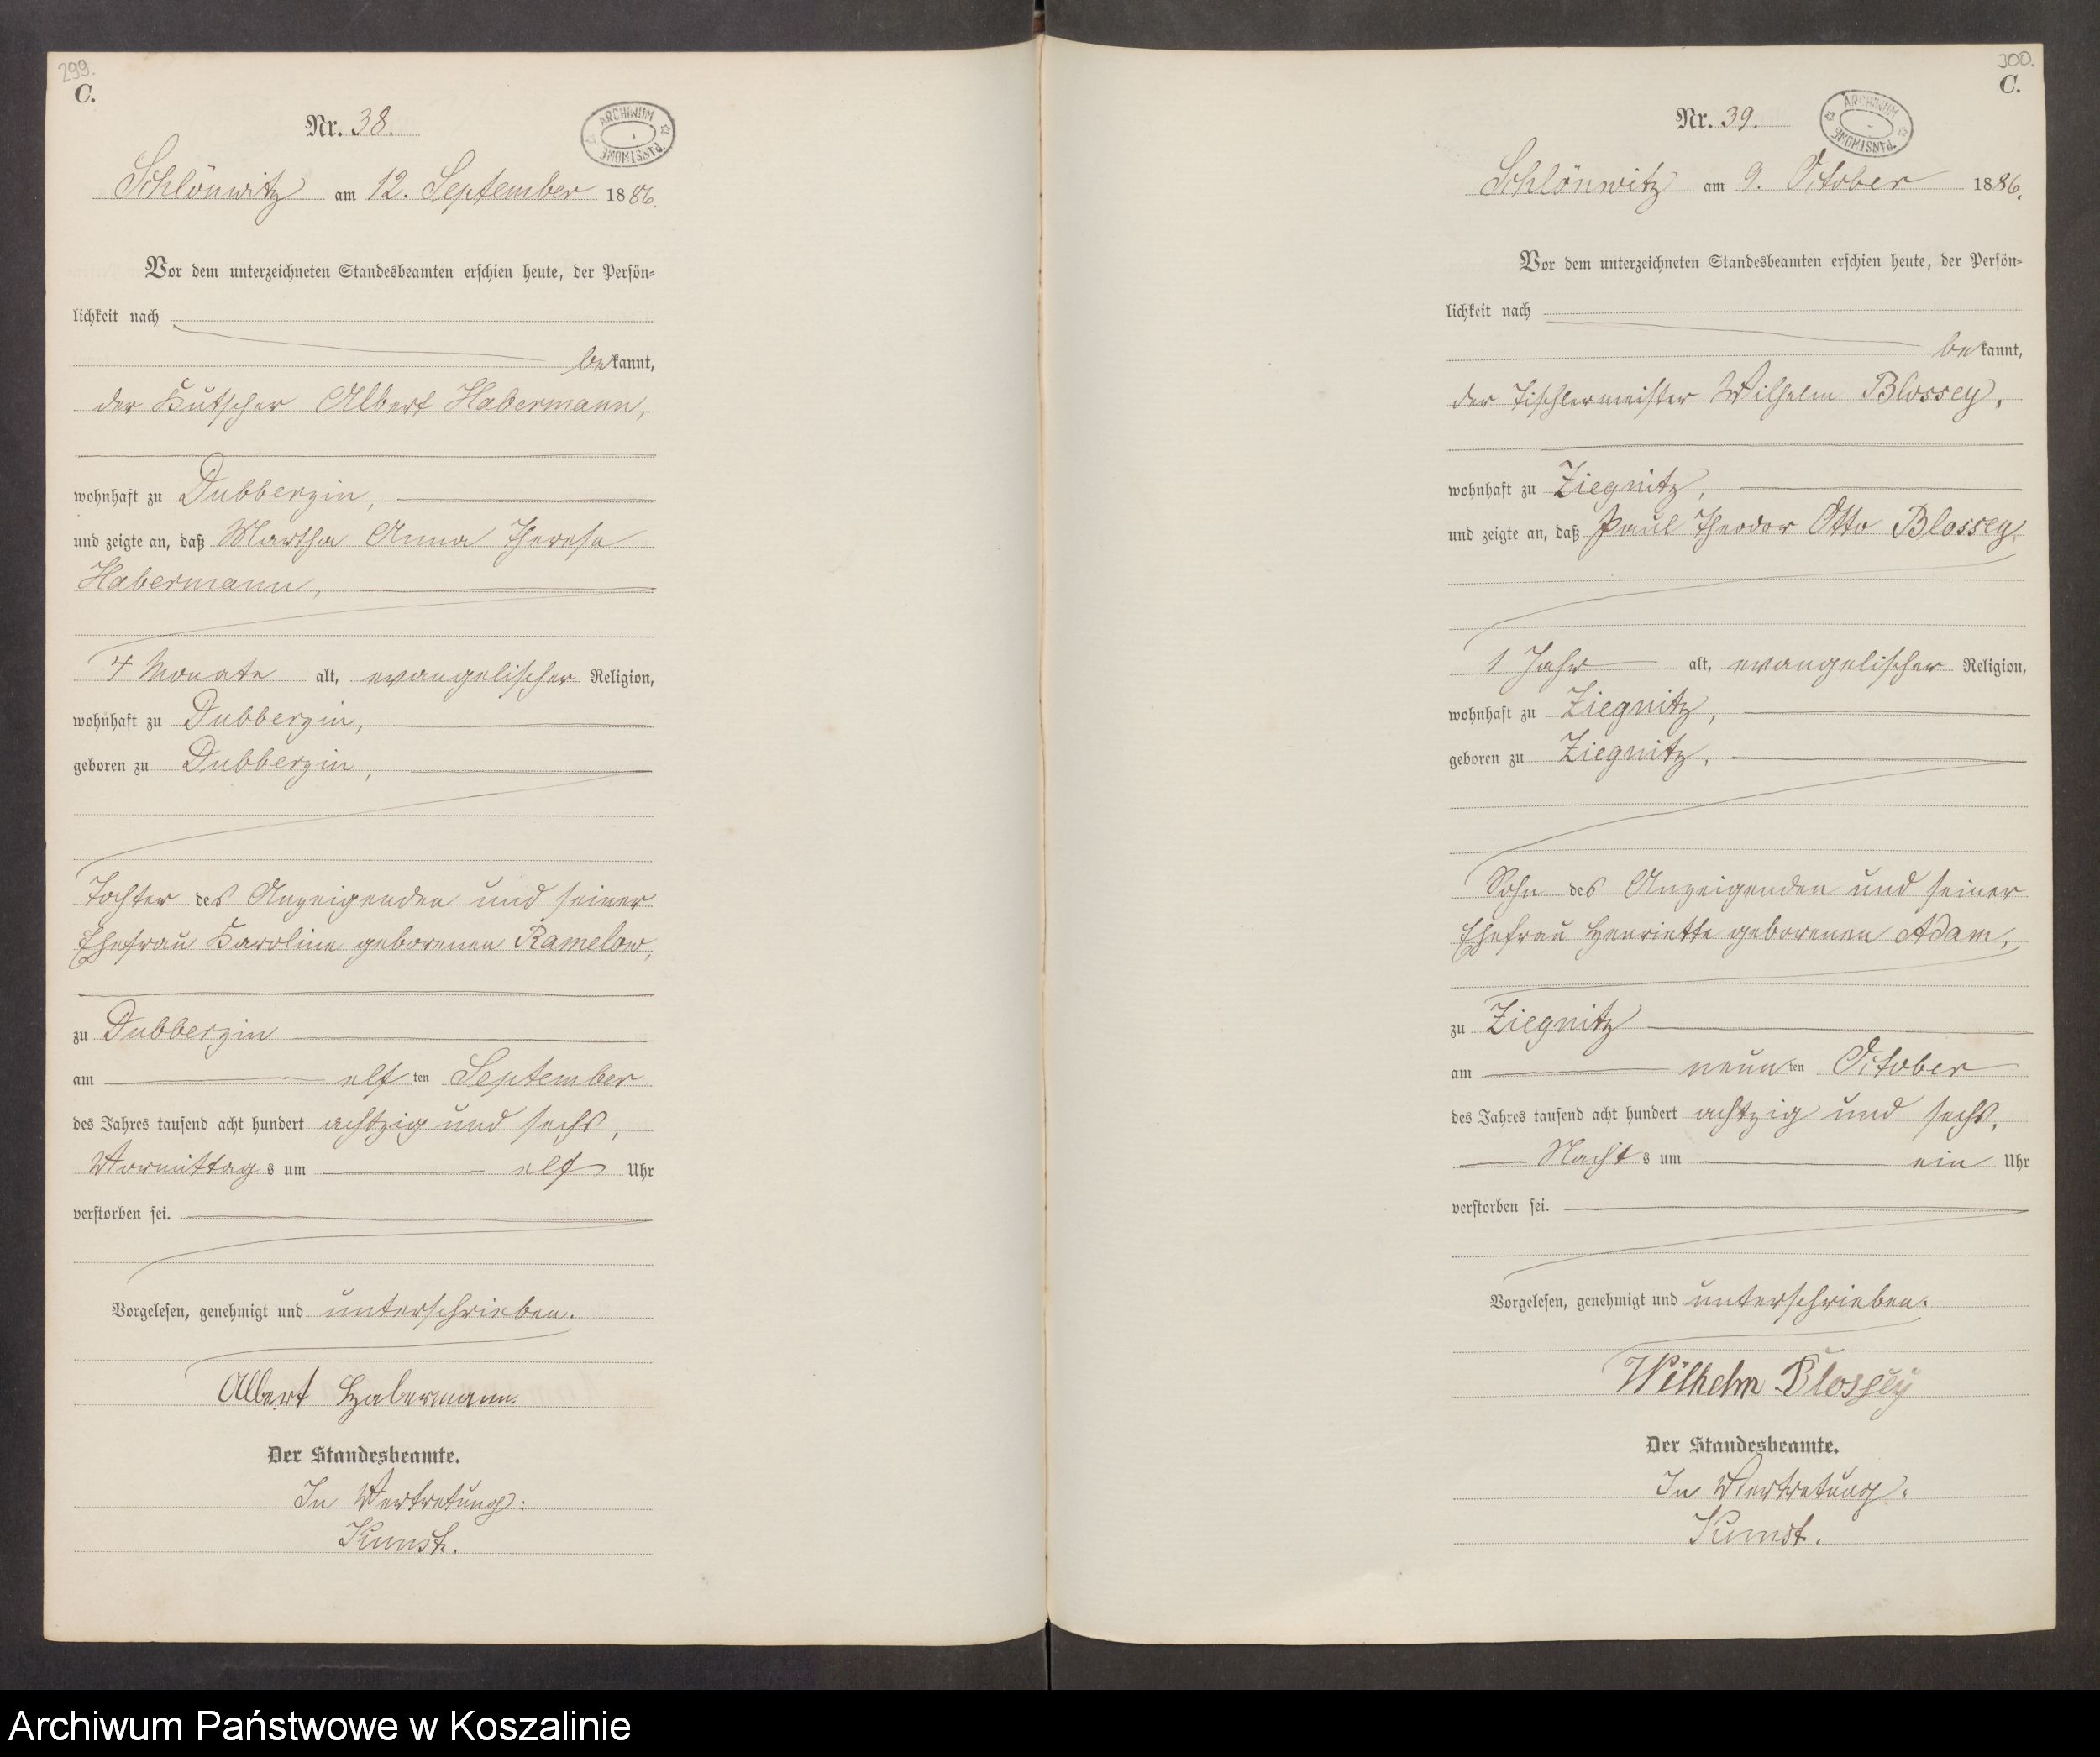 299.
C.
Nr. 38.
ARCHIWUM PAŃSTWOWE
Schlönwitz am 12. September 1886.
Vor dem unterzeichneten Standesbeamten erschien heute, der Persön-
lichkeit nach
bekannt,
der Kutscher Albert Habermann,
wohnhaft zu Dubberzin,
und zeigte an, daß Martha Anna Therese
Habermann,
4 Monate alt, evangelischer Religion,
wohnhaft zu Dubberzin,
geboren zu Dubberzin,
Tochter des Anzeigenden und seiner
Ehefrau Karoline geborenen Ramelow,
zu Dubberzin
am elften September
des Jahres tausend acht hundert achtzig und sechs,
Vormittags um elf Uhr
verstorben sei.
Vorgelesen, genehmigt und unterschrieben.
Albert Habermann.
Der Standesbeamte.
In Vertretung:
Kunst.
300.
C.
Nr. 39.
ARCHIWUM PAŃSTWOWE
Schlönwitz am 9. October 1886.
Vor dem unterzeichneten Standesbeamten erschien heute, der Persön-
lichkeit nach
bekannt,
der Tischlermeister Wilhelm Blossey,
wohnhaft zu Ziegnitz,
und zeigte an, daß Paul Theodor Otto Blossey,
1 Jahr alt, evangelischer Religion,
wohnhaft zu Ziegnitz,
geboren zu Ziegnitz,
Sohn des Anzeigenden und seiner
Ehefrau Henriette geborenen Adam,
zu Ziegnitz
am neunten October
des Jahres tausend acht hundert achtzig und sechs,
Nachts um ein Uhr
verstorben sei.
Vorgelesen, genehmigt und unterschrieben.
Wilhelm Blossey
Der Standesbeamte.
In Vertretung:
Kunst.
Archiwum Państwowe w Koszalinie